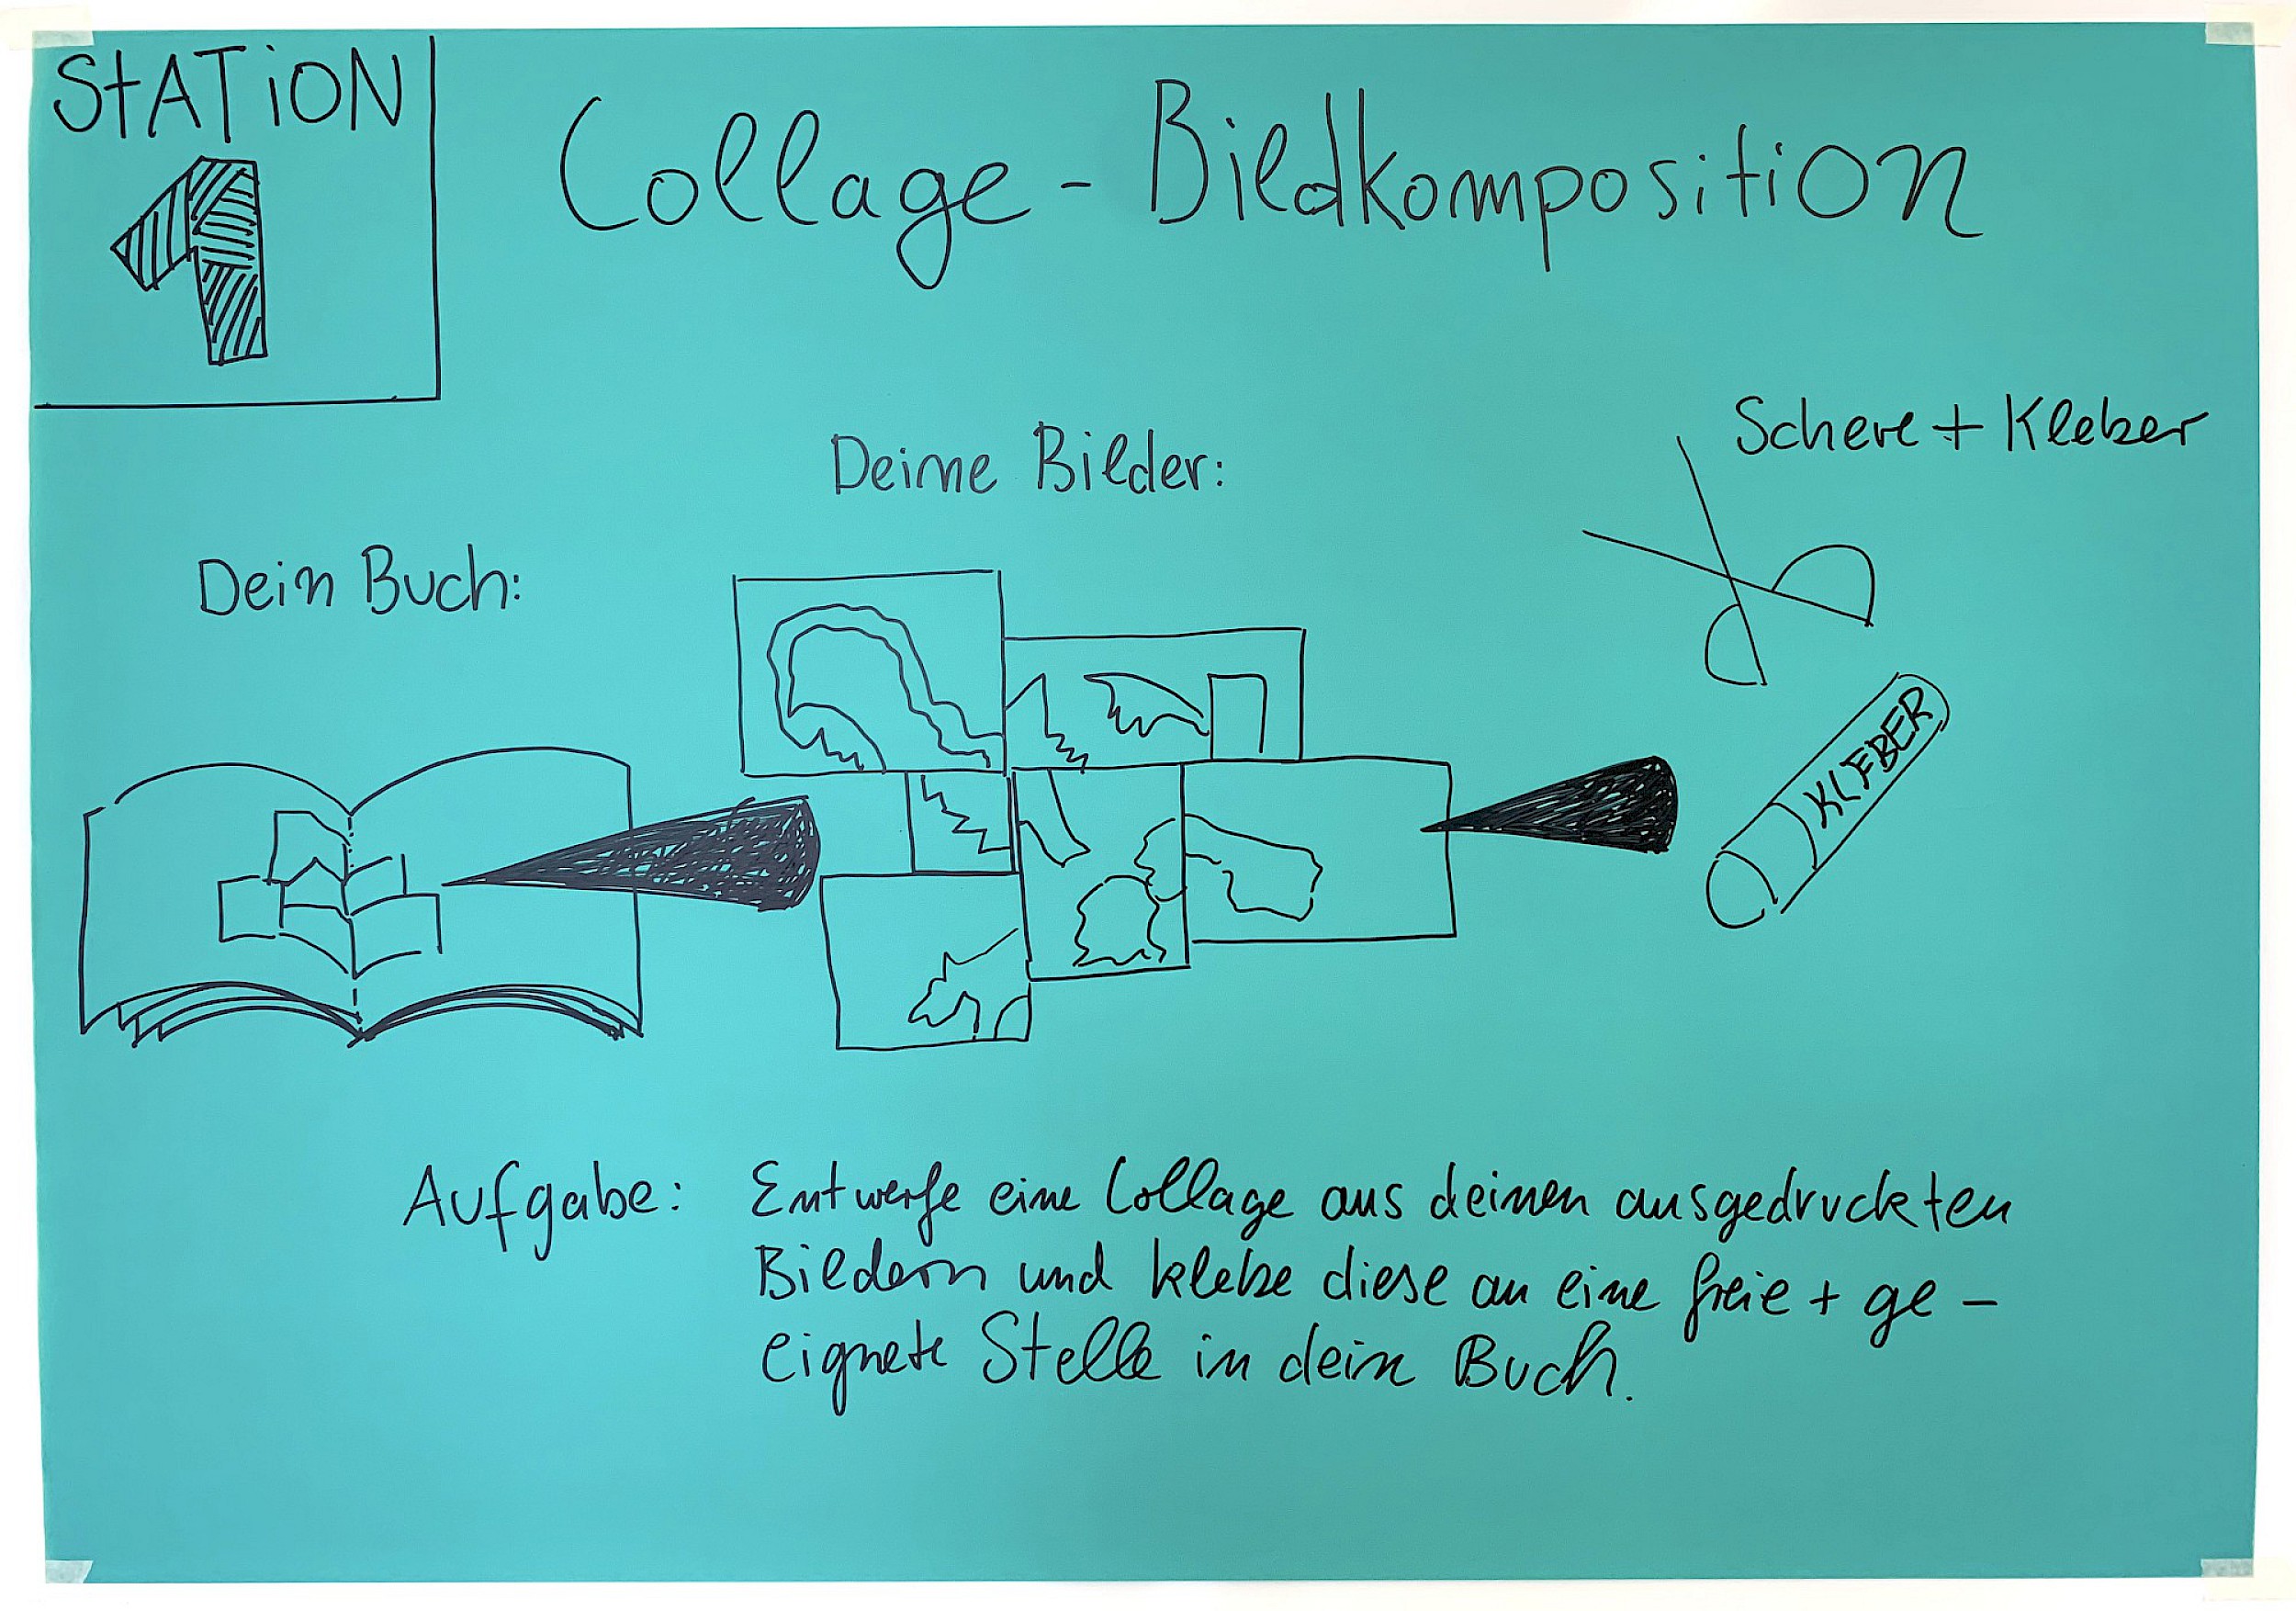 StATiON
1
Collage - Bildkomposition
Schere + Kleber
Deine Bilder:
Dein Buch:
KLEBER
Aufgabe: Entwerfe eine Collage aus deinen ausgedruckten
Bildern und klebe diese an eine freie + ge -
eignete Stelle in dein Buch.